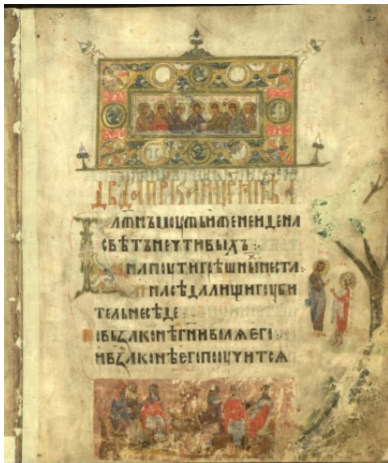 БЛАЖНЪ МОУЖЬ ИЖЕ НЕ ИДЕ НА
СВѢТЪ НЕЧТИВЫХЪ
И НА ПОУТИ ГРѢШНЫ НЕ СТА
И НА СѢДАЛИЩИ ГОУБИ
ТЕЛЬ НЕ СѢДЕ
ВЪ ЗАКОНѢ ГНИ ВОЛѦ ЕГО
И ВЪ ЗАКОНѢ ЕГО ПОУЧИТСѦ